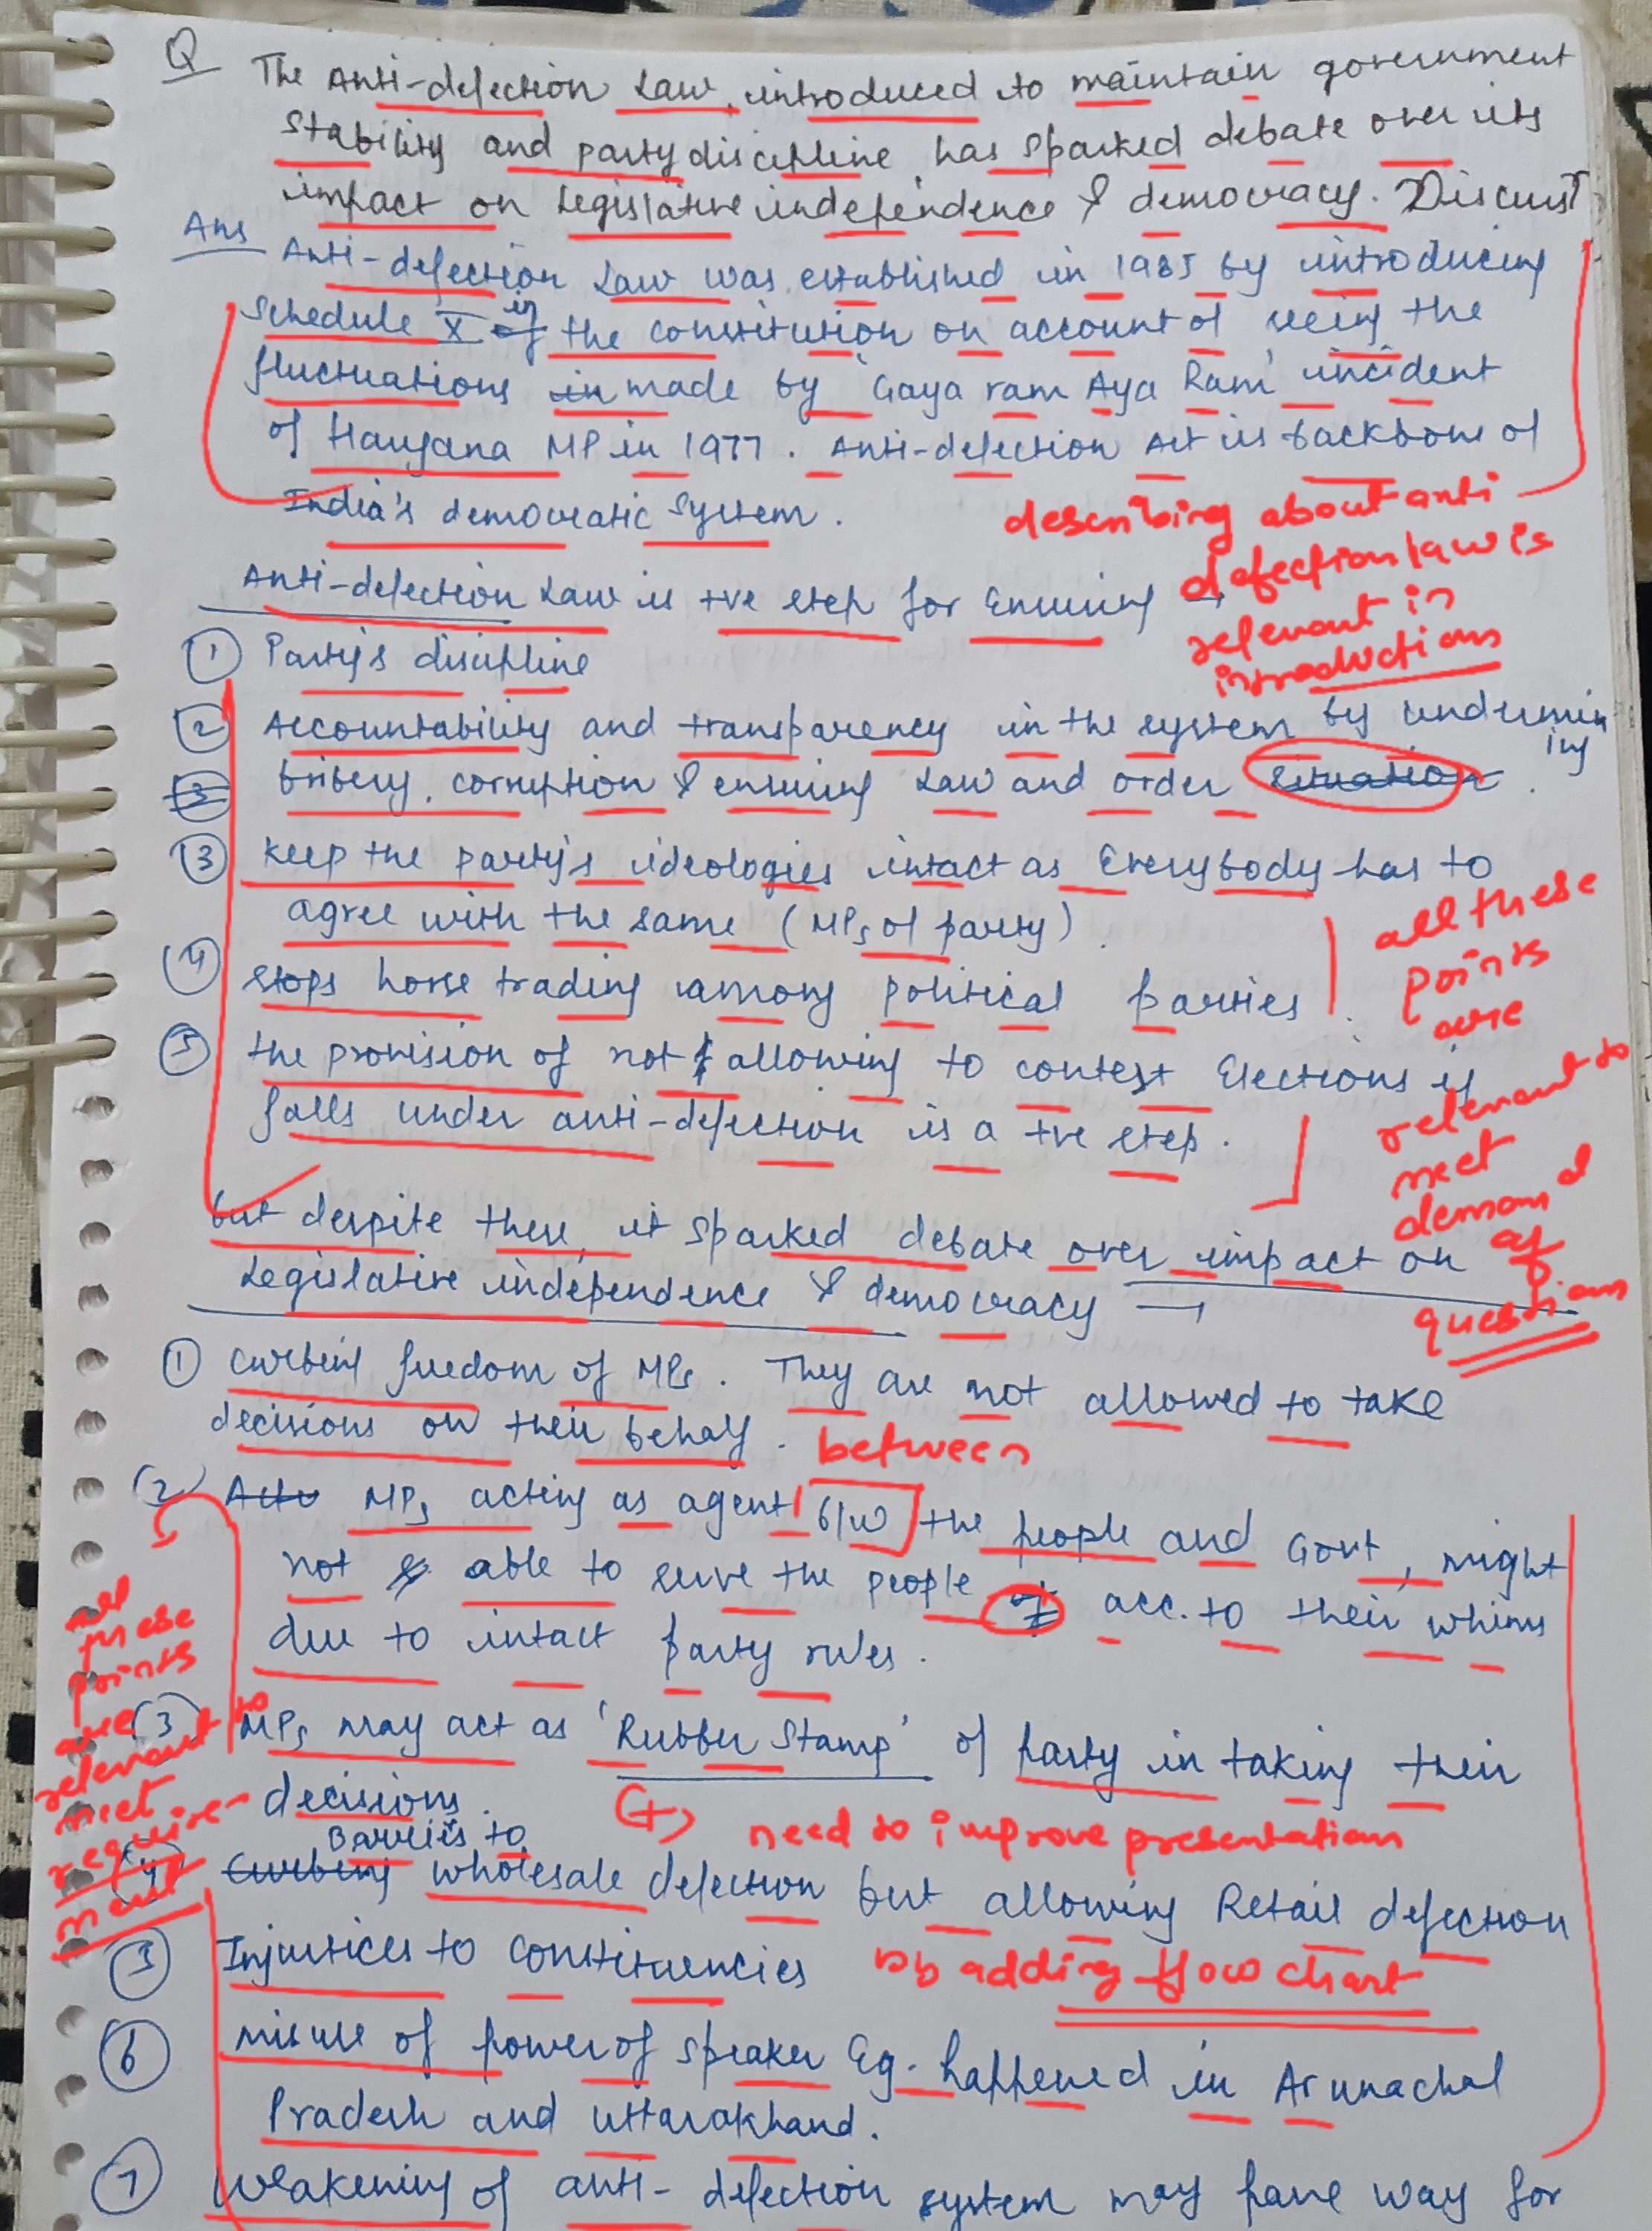 Q The Anti-defection Law, introduced to maintain government
stability and party discipline, has sparked debate over its
impact on legislative independence & democracy. Discuss
Ans Anti-defection Law was established in 1985 by introducing
Schedule X of in the constitution on account of seeing the
fluctuations in made by 'Gaya ram Aya Ram' incident
of Haryana MP in 1977. Anti-defection Act is backbone of
India's democratic system.
describing about anti
defection law is
relevant in
introductions
Anti-defection Law is +ve step for Ensuring →
① Party's discipline
② Accountability and transparency in the system by undermin
ing
③ bribery, corruption & ensuring Law and order situation.
③ keep the party's ideologies intact as Everybody has to
agree with the same (MPs of party).
④ stops horse trading among political parties.
⑤ the provision of not allowing to contest Elections if
falls under anti-defection is a +ve step.
all these
points
are
relevant to
meet
demand
of
question
but despite these, it sparked debate over impact on
Legislative independence & democracy →
① curbing freedom of MPs. They are not allowed to take
decisions on their behalf.
between
② Actu MPs acting as agent b/w the people and Govt, might
not able to serve the people of acc. to their whims
due to intact party rules.
③ MPs may act as 'Rubber Stamp' of party in taking their
decisions.
all
these
points
are
relevant to
meet
require-
ment
(+) need to improve presentation
Barries to
④ Curbing wholesale defection but allowing Retail defection
⑤ Injustices to constituencies
by adding flow chart
⑥ misuse of power of speaker Eg. happened in Arunachal
Pradesh and uttarakhand.
⑦ Weakening of anti-defection system may pave way for